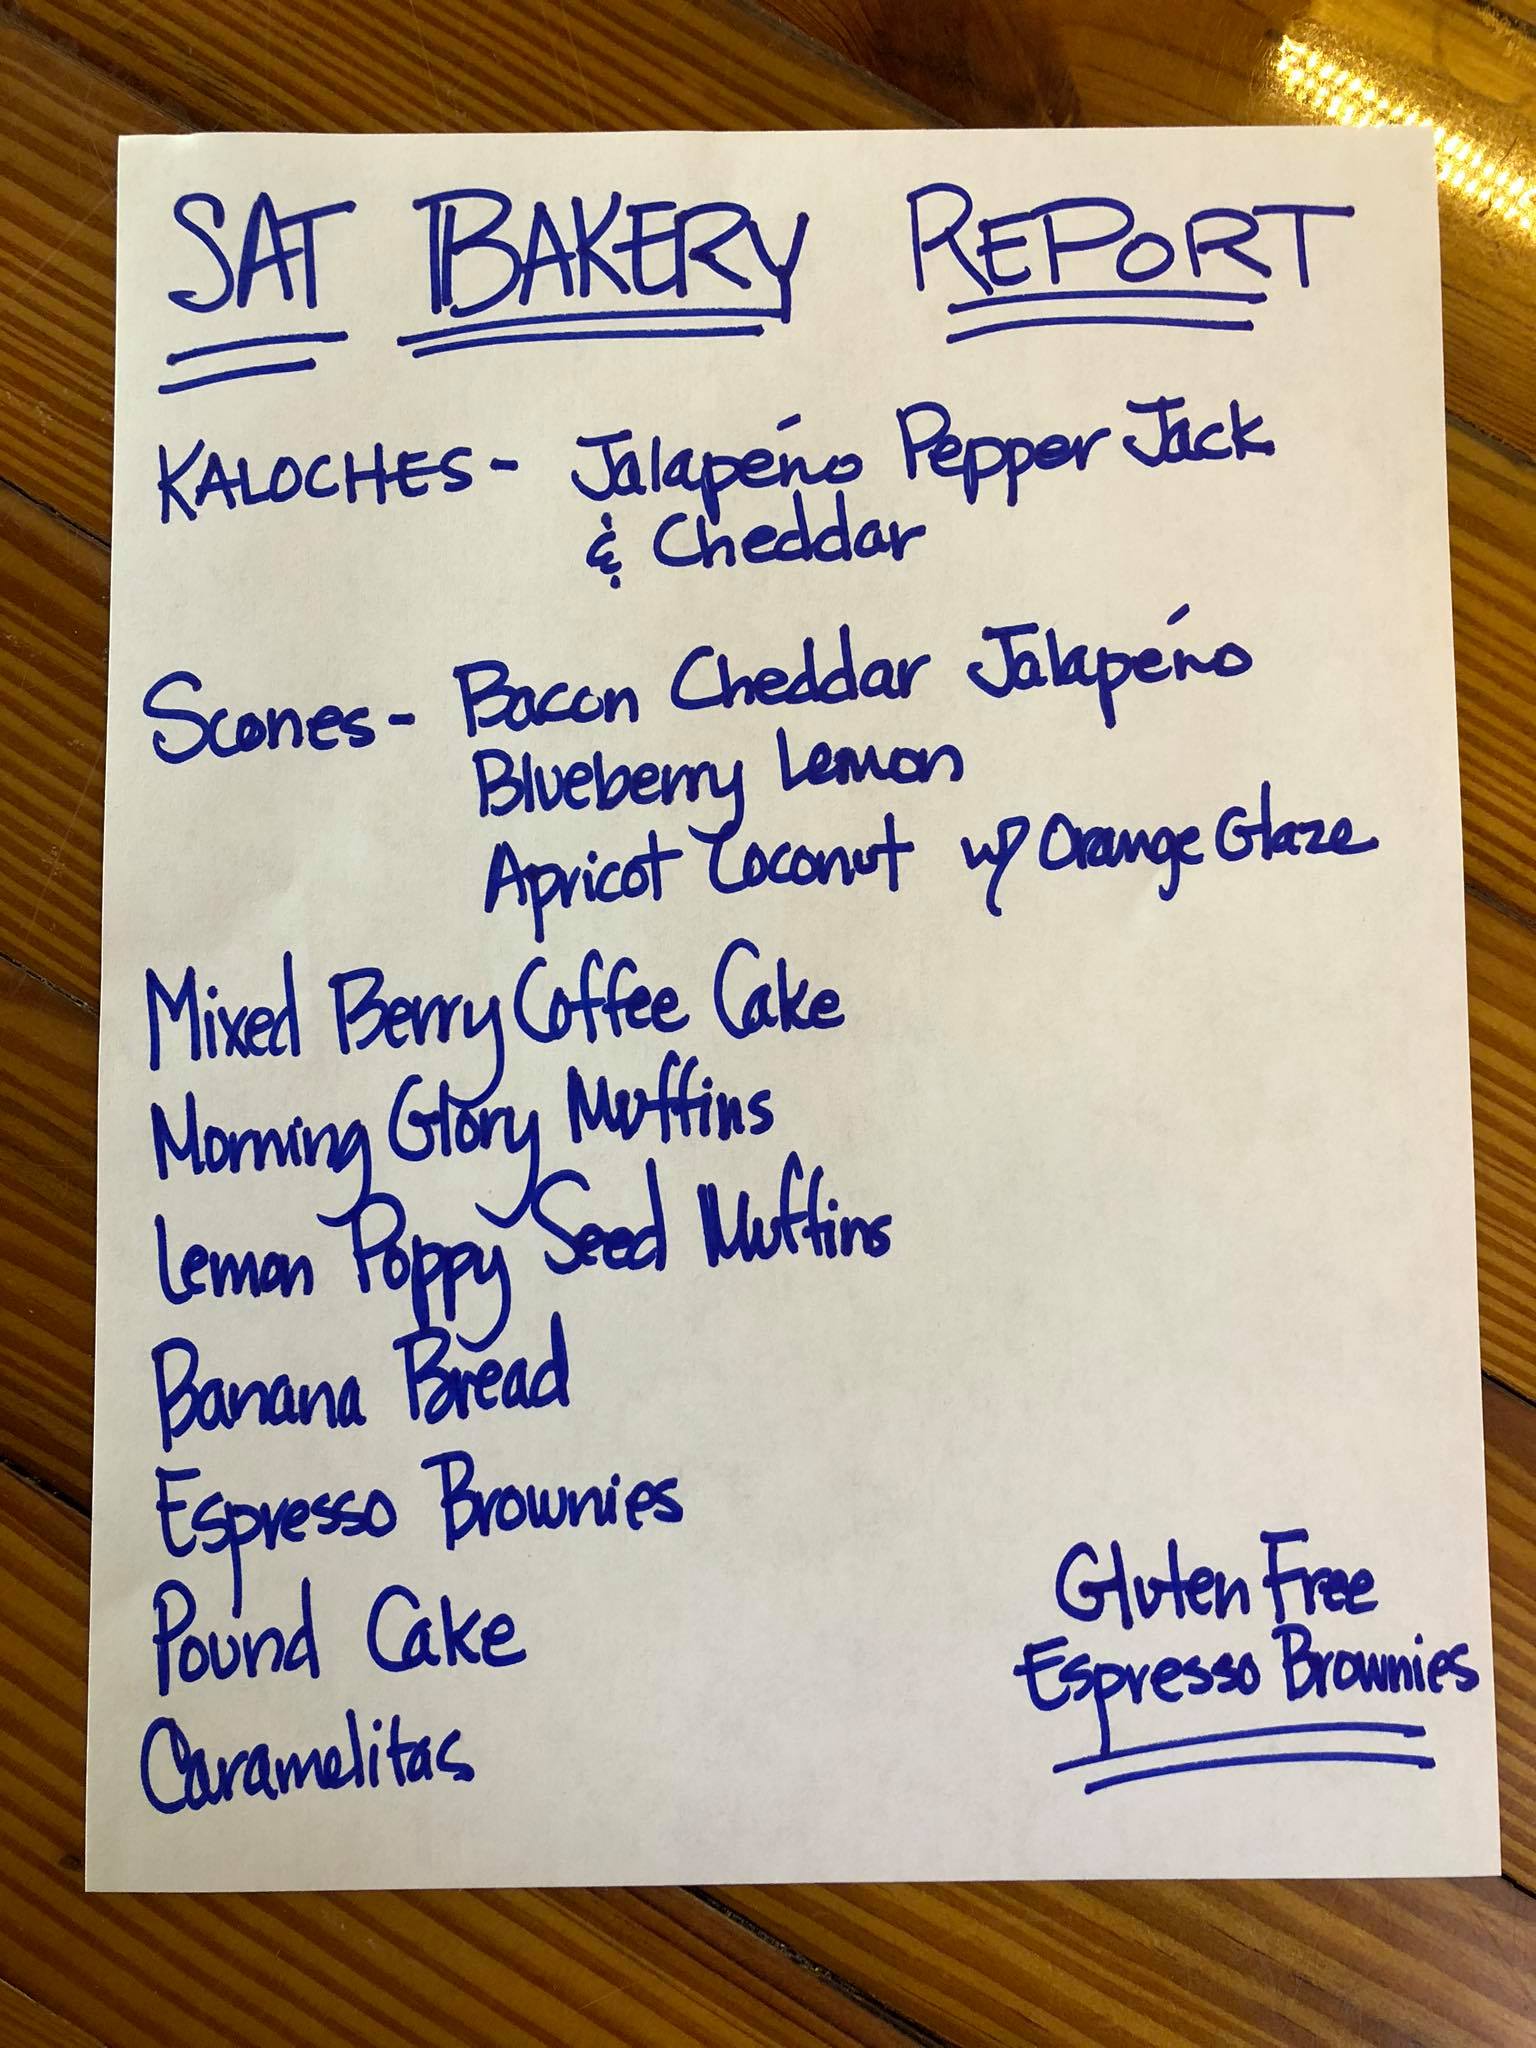 SAT BAKERY REPORT
KALOCHES - Jalapéno Pepper Jack
& Cheddar
Scones - Bacon Cheddar Jalapéno
Blueberry Lemon
Apricot Coconut w/ Orange Glaze
Mixed Berry Coffee Cake
Morning Glory Muffins
Lemon Poppy Seed Muffins
Banana Bread
Espresso Brownies
Pound Cake
Caramelitas
Gluten Free
Espresso Brownies